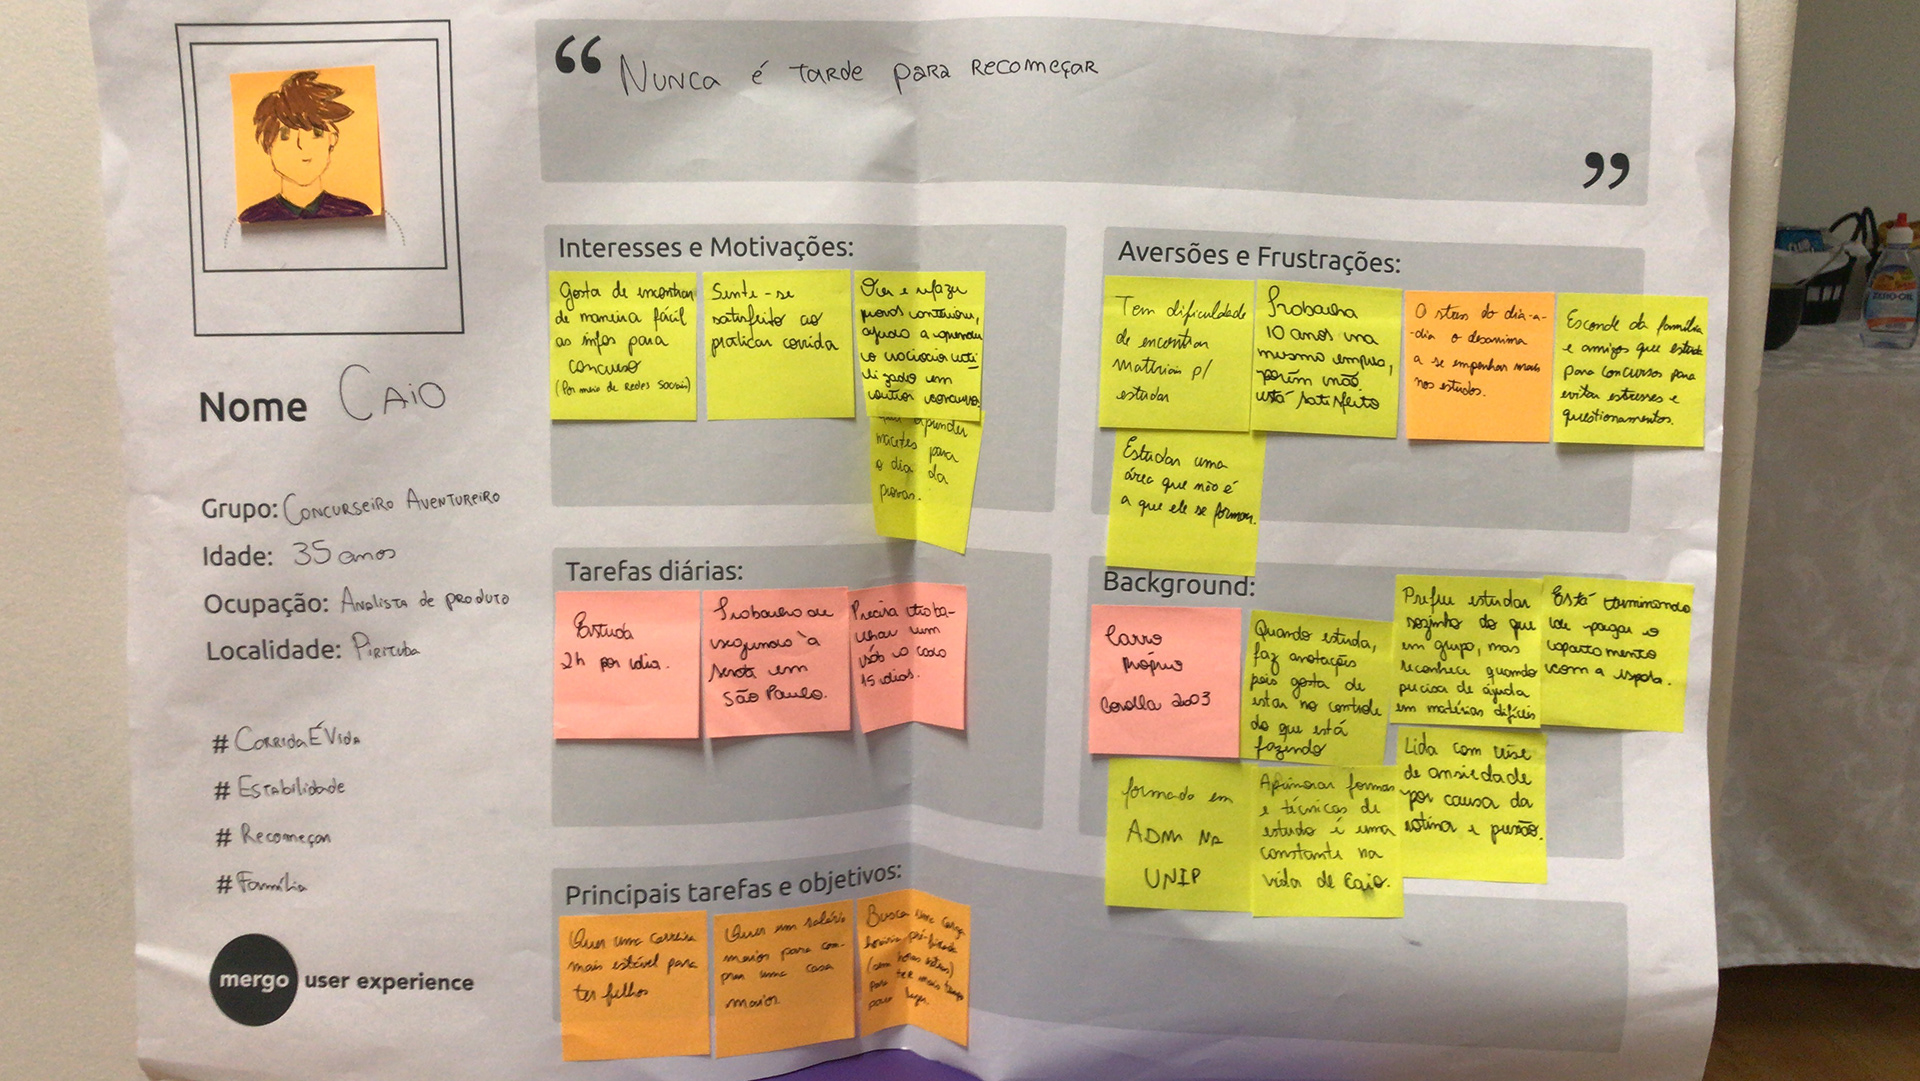 “ Nunca é tarde para recomeçar ”
Nome Caio
Grupo: Concurseiro Aventureiro
Idade: 35 anos
Ocupação: Analista de produto
Localidade: Pirituba
# CorridaÉVida
# Estabilidade
# Recomeçar
# Família
mergo user experience
Interesses e Motivações:
Gosta de encontrar
de maneira fácil
as infos para
concurso
(Por meio de Redes Sociais)
Sente-se
satisfeito ao
praticar corrida
e refazer
provas
ajuda a
o raciocínio uti-
lizado em
outros concursos
aprender
macetes para
o dia da
provas.
Aversões e Frustrações:
Tem dificuldade
de encontrar
materiais p/
estudar
Trabalha
10 anos na
mesma empresa,
porém não
está satisfeito
O stress do dia-a-
-dia o desanima
a se empenhar mais
nos estudos.
Esconde da família
e amigos que estuda
para concursos para
evitar estresses e
questionamentos.
Estudar uma
área que não é
a que ele se formou.
Tarefas diárias:
Estuda
2h por dia.
Trabalha de
segunda à
sexta em
São Paulo.
Precisa traba-
lhar um
sáb a cada
15 dias.
Background:
Carro
Próprio
Corolla 2003
Quando estuda,
faz anotações
pois gosta de
estar no controle
do que está
fazendo
Prefere estudar
sozinho do que
em grupo, mas
reconhece quando
precisa de ajuda
em matérias difíceis
Está terminando
de pagar o
apartamento
com a esposa.
formado em
ADM na
UNIP
Aprimorar formas
e técnicas de
estudo é uma
constante na
vida de Caio.
Lida com crise
de ansiedade
por causa da
rotina e pressão.
Principais tarefas e objetivos:
Quer uma carreira
mais estável para
ter filhos
Quer um salário
maior para com-
prar uma casa
maior.
Busca uma carga
horária pré-fixada
(sem horas extras)
para ter mais tempo
para
ZERO-CAL